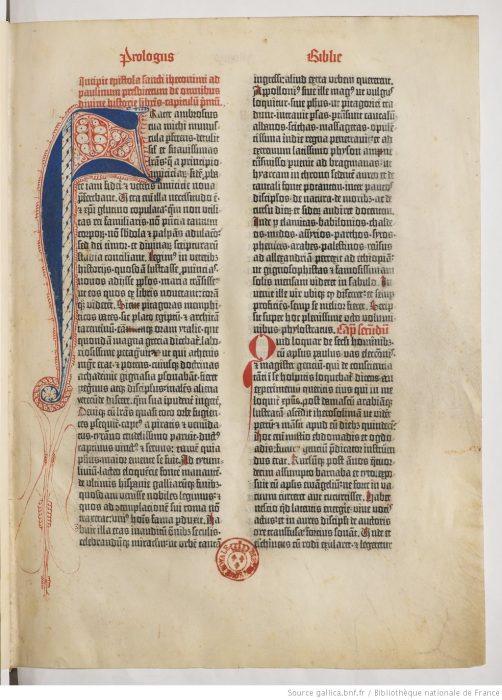 Prologus
Incipit epistola sancti iheronimi ad
paulinum presbiterum de omnibus
divine historie libris capitulū pmū.
Frater ambrosius
tua michi munus
cula pferens· detulit
sił et suavissimas
lrās· q̄ a principio
amiciciaꝝ· fidē pba
te iam fidei et veteris amicicie nova
pferebant. Vera em̄ illa necessitudo ē·
et xp̄i glutino copulata· quā non utili
tas rei familiaris· nō pn̄cia tantum
corpoꝝ· nō sbdola et palpās adulacō·
sed dei timor· et divinaꝝ scripturarū
studia conciliant. Legim⁹ in veteribꝫ
historijs· quosdā lustrasse· puincias·
novos adijsse pplos· maria trāsisse·
ut eos quos ex libris noverant· corā
qꝫ viderēt. Sicut pitagoras memphi
ticos vates· sic plato egiptū· et architā
tarentinū· eam oram ytalie· que
quondā magna grecia dicebat· labo
riosissime peragravit· et ut qui athenis
mgr̄ erat· et potens· cuiusqꝫ doctrinas
achademie gignasia psonabāt· fieret
peginus atqꝫ discipulus· malēs aliena
verecūde discere· quā sua ipudēt ingerere·
Deniqꝫ cū lrās quasi toto orbe fugien
tes pseqit̄· capt⁹ a piratis et venūda
tus· tyrāno crudelissimo paruit·
captivus vinct⁹ et servus· tamē quia
phūs maior emente se fuit. Ad tytum
liviū· lacteo eloquēcie fonte manantē·
de ultimis hispanie galliarūqꝫ finibꝫ·
quosdam venisse nobiles legimus· et
quos ad cōtemplacionē sui roma nō
traxerat· uni⁹ hoīs fama pduxit. Ha
buit illa etas inauditū om̄ibꝫ seculis·
celebrandūqꝫ miraculū· ut urbē tantā
Biblie
ingressi· aliud extra urbem quererent.
Appolloni⁹ sive ille mag⁹ ut vulgus
loquitur· sive phūs· ut pitagorici tra
dunt· intravit psas· ptrāsivit caucasū
albanos· scithas· massagetas· opulē
tissima indie regna penetravit· et ad
extremum latissimo physon amne
trāsmisso puenit ad bragmanas· ut
hyarcam in throno sedētē aureo et de
tantali fonte potantem· inter paucos
discipłos· de natura· de moribꝫ· ac de
cursu dieꝝ et sideꝝ audiret docentem.
Inde p elamitas· babilonios· chalde
os· medos· assyrios· parthos· syros·
phenices· arabes· palestinos· reversus
ad allexandriā· perrexit ad ethiopiā·
ut gignosophistas et famosissimam
solis mensam videret in sabulo. In
venit ille vir ubiqꝫ qd̄ disceret· et semp
proficiēs· semp se melior fieret. Scrip
sit super hoc plenissime octo volumi
nibus· phylostratus. Cap̄ secūdū
Quid loquar de secli hominibꝫ·
cū apłus paulus· vas electiōis·
et magister gentiū· qui de consciencia
tāti i se hospitis loquebat̄ dicens· an
experimentū queritis eius qui in me
loquit̄ xp̄us· post damascū arabiāqꝫ
lustratā· ascēdit iherosolimā ut vidēt
petrū· et māsit apud eū diebꝫ quindecī·
Hoc em̄ misterio ebdomadis et ogdo
adis· futur⁹ genciū pdicator instruen
dus erat. Rursūqꝫ post ānos qtuor
decim assumpto barnaba et tyto· expo
suit cū apłis euvangeliū· ne forte in va
cuum curreret aut cucurrisset. Habet
nescio qd̄ latentis energie· vive vocis
actus· et in aures discipłi de auctoris
ore transfusa· forcius sonat. Unde et
eschineus cū rodi exularet· et legeretur
Source gallica.bnf.fr / Bibliothèque nationale de France